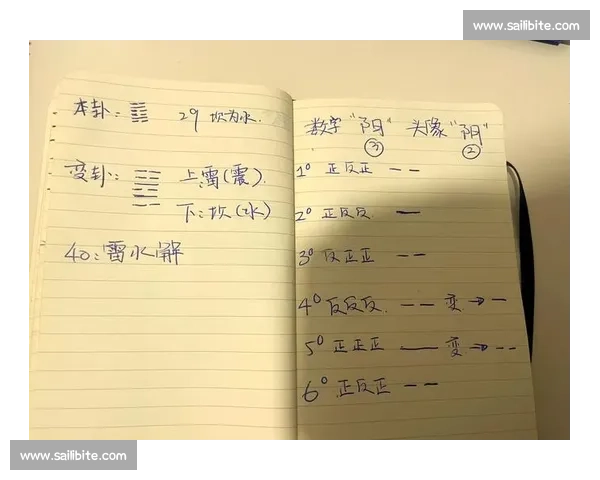 www.sailibite.com
本卦: ䷜ 29 坎为水.
变卦: ䷧ 上:雷(震).
下:坎(水)
40:雷水解
数字“阳” 头像“阴”
③ ②
1° 正反正 – –
2° 正反反 —
3° 反正正 – –
4° 反反反. – – 变 → –
5° 正正正 — 变 → - -
6° 正反正 – –
www.sailibite.com